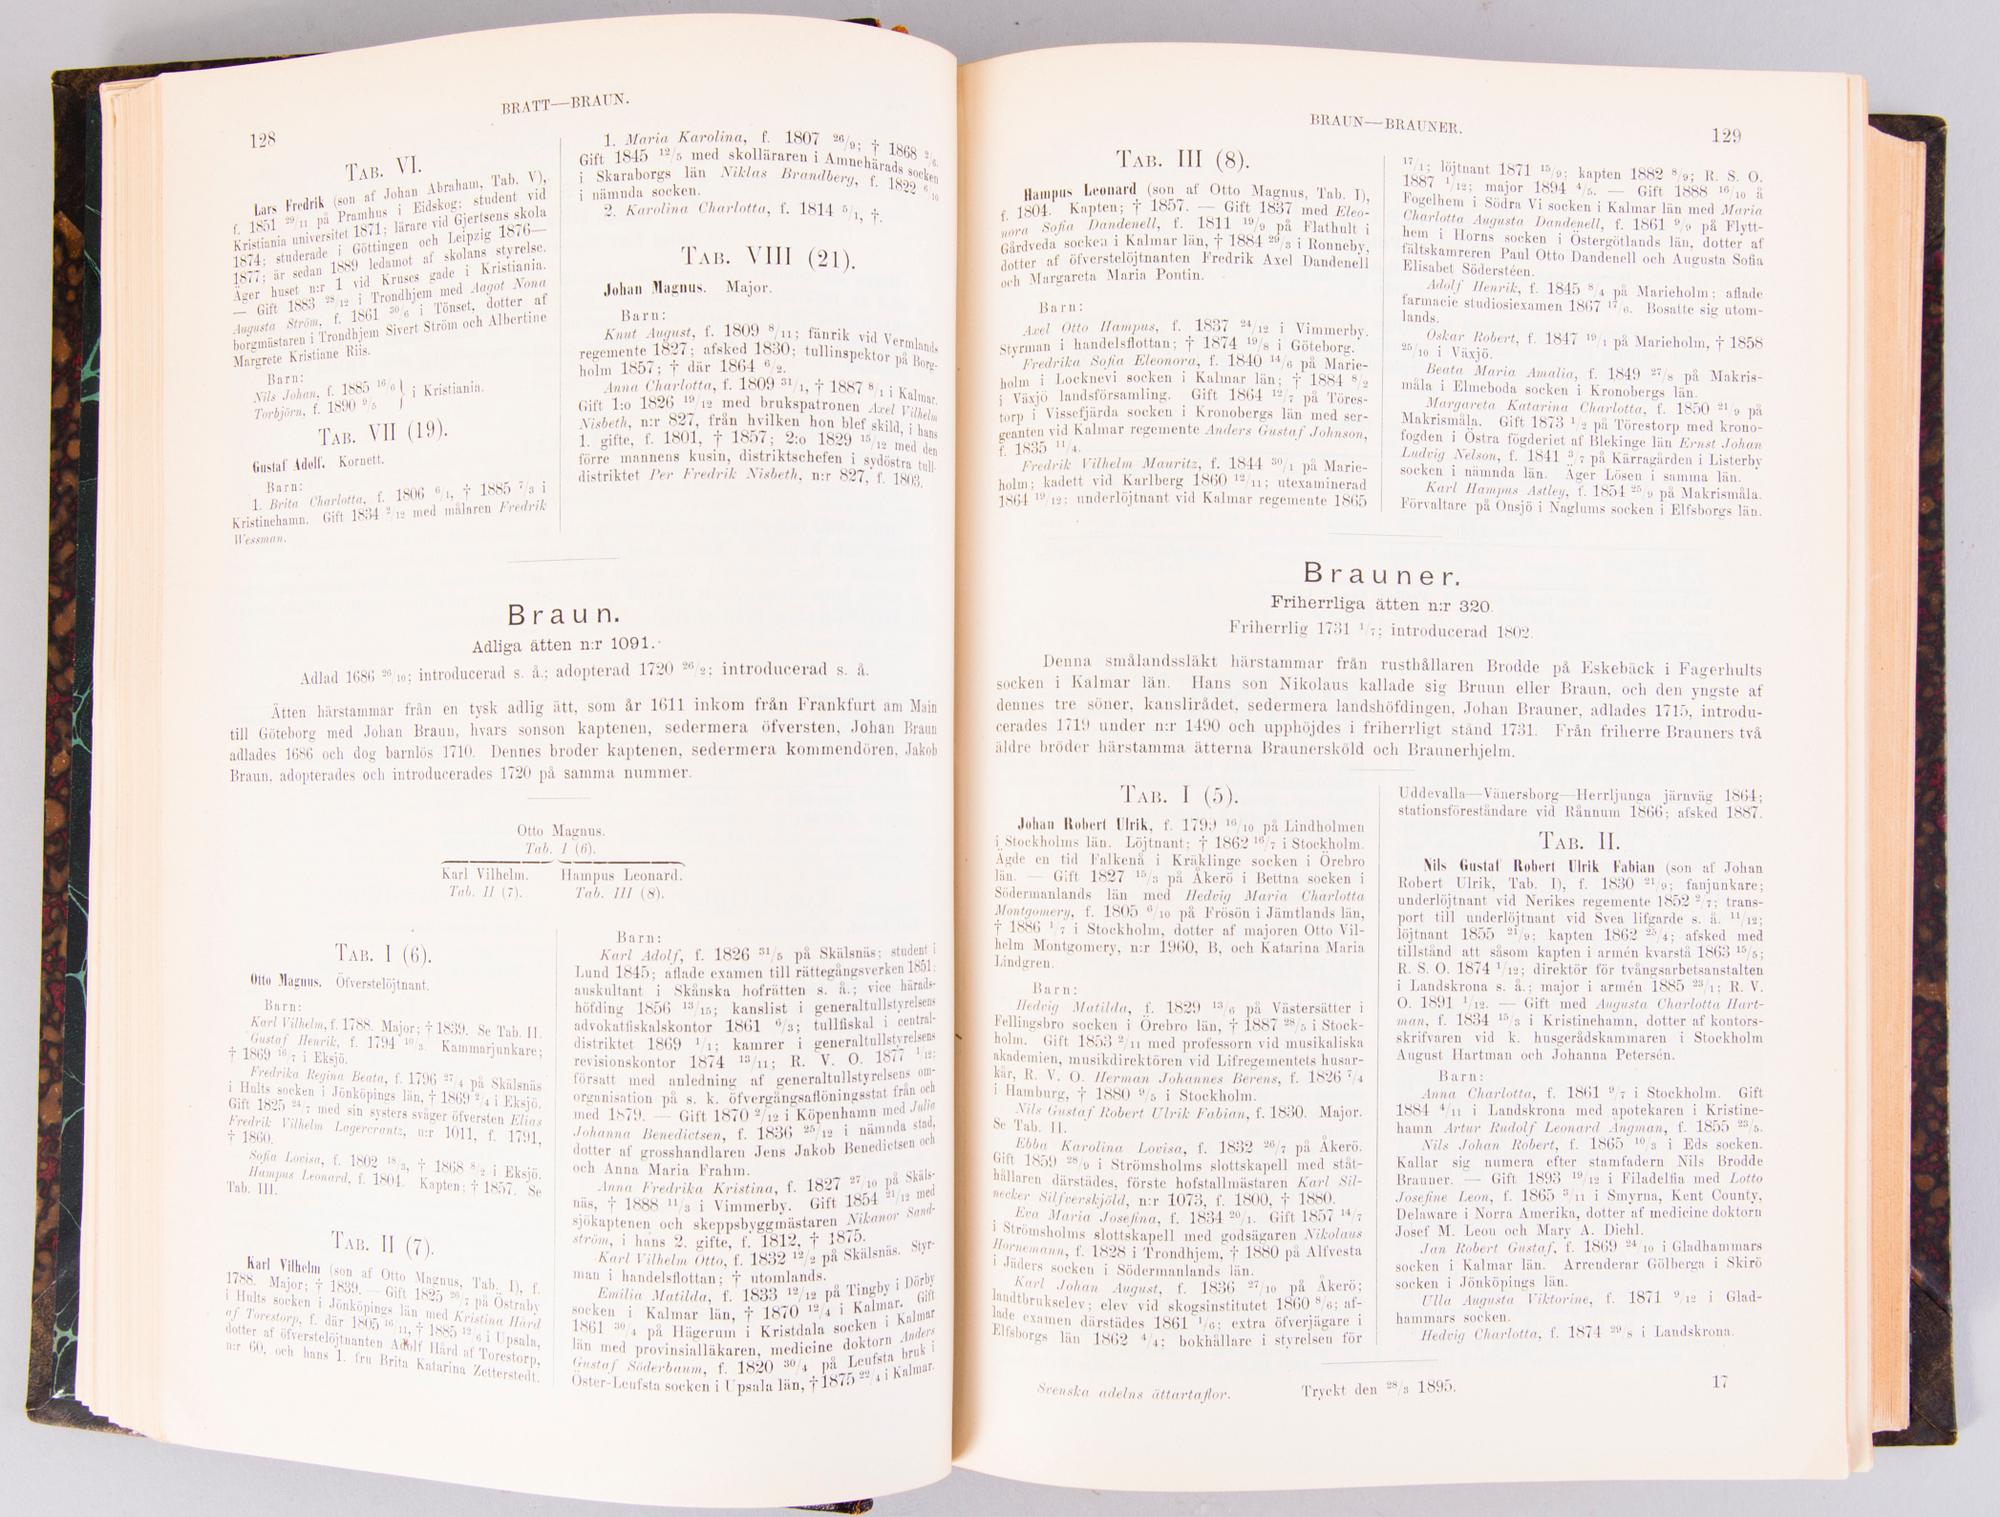 BRATT—BRAUN.
128
TAB. VI.
Lars Fredrik (son af Johan Abraham, Tab. V),
f. 1851 29/11 på Pramhus i Eidskog; student vid
Kristiania universitet 1871; lärare vid Gjertsens skola
1874; studerade i Göttingen och Leipzig 1876—
1877; är sedan 1889 ledamot af skolans styrelse.
Äger huset n:r 1 vid Kruses gade i Kristiania.
— Gift 1883 28/12 i Trondhjem med Aagot Nona
Augusta Ström, f. 1861 30/6 i Tönset, dotter af
borgmästaren i Trondhjem Sivert Ström och Albertine
Margrete Kristiane Riis.
Barn:
Nils Johan, f. 1885 16/6 } i Kristiania.
Torbjörn, f. 1890 9/5
TAB. VII (19).
Gustaf Adolf. Kornett.
Barn:
1. Brita Charlotta, f. 1806 6/1, † 1885 7/3 i
Kristinehamn. Gift 1834 2/12 med målaren Fredrik
Wessman.
1. Maria Karolina, f. 1807 26/9; † 1868 2/6.
Gift 1845 12/5 med skolläraren i Amnehärads socken
i Skaraborgs län Niklas Brandberg, f. 1822 6/10
i nämnda socken.
2. Karolina Charlotta, f. 1814 5/1, †.
TAB. VIII (21).
Johan Magnus. Major.
Barn:
Knut August, f. 1809 8/11; fänrik vid Vermlands
regemente 1827; afsked 1830; tullinspektor på Borg-
holm 1857; † där 1864 6/2.
Anna Charlotta, f. 1809 31/1, † 1887 8/1 i Kalmar.
Gift 1:o 1826 19/12 med brukspatronen Axel Vilhelm
Nisbeth, n:r 827, från hvilken hon blef skild, i hans
1. gifte, f. 1801, † 1857; 2:o 1829 15/12 med den
förre mannens kusin, distriktschefen i sydöstra tull-
distriktet Per Fredrik Nisbeth, n:r 827, f. 1803.
Braun.
Adliga ätten n:r 1091.
Adlad 1686 26/10; introducerad s. å.; adopterad 1720 26/2; introducerad s. å.
Ätten härstammar från en tysk adlig ätt, som år 1611 inkom från Frankfurt am Main
till Göteborg med Johan Braun, hvars sonson kaptenen, sedermera öfversten, Johan Braun
adlades 1686 och dog barnlös 1710. Dennes broder kaptenen, sedermera kommendören, Jakob
Braun, adopterades och introducerades 1720 på samma nummer.
Otto Magnus.
Tab. I (6).
Karl Vilhelm. Hampus Leonard.
Tab. II (7). Tab. III (8).
TAB. I (6).
Otto Magnus. Öfverstelöjtnant.
Barn:
Karl Vilhelm, f. 1788. Major; † 1839. Se Tab. II.
Gustaf Henrik, f. 1794 10/3. Kammarjunkare;
† 1869 16/7 i Eksjö.
Fredrika Regina Beata, f. 1796 27/4 på Skälsnäs
i Hults socken i Jönköpings län, † 1869 2/4 i Eksjö.
Gift 1825 24/7 med sin systers svåger öfversten Elias
Fredrik Vilhelm Lagercrantz, n:r 1011, f. 1791,
† 1860.
Sofia Lovisa, f. 1802 18/3, † 1868 8/2 i Eksjö.
Hampus Leonard, f. 1804. Kapten; † 1857. Se
Tab. III.
TAB. II (7).
Karl Vilhelm (son af Otto Magnus, Tab. I), f.
1788. Major; † 1839. — Gift 1825 26/7 på Östraby
i Hults socken i Jönköpings län med Kristina Hård
af Torestorp, f. där 1805 16/11, † 1885 12/6 i Upsala,
dotter af öfverstelöjtnanten Adolf Hård af Torestorp,
n:r 60, och hans 1. fru Brita Katarina Zetterstedt.
Barn:
Karl Adolf, f. 1826 31/5 på Skälsnäs; student i
Lund 1845; aflade examen till rättegångsverken 1851;
auskultant i Skånska hofrätten s. å.; vice härads-
höfding 1856 13/15; kanslist i generaltullstyrelsens
advokatfiskalskontor 1861 6/3; tullfiskal i central-
distriktet 1869 1/1; kamrer i generaltullstyrelsens
revisionskontor 1874 13/11; R. V. O. 1877 1/12;
försatt med anledning af generaltullstyrelsens om-
organisation på s. k. öfvergångsaflöningsstat från och
med 1879. — Gift 1870 2/12 i Köpenhamn med Julia
Johanna Benedictsen, f. 1836 25/12 i nämnda stad,
dotter af grosshandlaren Jens Jakob Benedictsen och
och Anna Maria Frahm.
Anna Fredrika Kristina, f. 1827 27/10 på Skäls-
näs, † 1888 11/3 i Vimmerby. Gift 1854 21/12 med
sjökaptenen och skeppsbyggmästaren Nikanor Sand-
ström, i hans 2. gifte, f. 1812, † 1875.
Karl Vilhelm Otto, f. 1832 12/2 på Skälsnäs. Styr-
man i handelsflottan; † utomlands.
Emilia Matilda, f. 1833 12/12 på Tingby i Dörby
socken i Kalmar län, † 1870 12/4 i Kalmar. Gift
1861 30/4 på Hägerum i Kristdala socken i Kalmar
län med provinsialläkaren, medicine doktorn Anders
Gustaf Söderbaum, f. 1820 30/4 på Leufsta bruk i
Öster-Leufsta socken i Upsala län, † 1875 22/4 i Kalmar.
BRAUN—BRAUNER.
129
TAB. III (8).
Hampus Leonard (son af Otto Magnus, Tab. I),
f. 1804. Kapten; † 1857. — Gift 1837 med Eleo-
nora Sofia Dandenell, f. 1811 19/9 på Flathult i
Gårdveda socken i Kalmar län, † 1884 29/3 i Ronneby,
dotter af öfverstelöjtnanten Fredrik Axel Dandenell
och Margareta Maria Pontin.
Barn:
Axel Otto Hampus, f. 1837 24/12 i Vimmerby.
Styrman i handelsflottan; † 1874 19/8 i Göteborg.
Fredrika Sofia Eleonora, f. 1840 14/6 på Marie-
holm i Locknevi socken i Kalmar län; † 1884 8/2
i Växjö landsförsamling. Gift 1864 12/7 på Töres-
torp i Vissefjärda socken i Kronobergs län med ser-
geanten vid Kalmar regemente Anders Gustaf Johnson,
f. 1835 11/4.
Fredrik Vilhelm Mauritz, f. 1844 30/1 på Marie-
holm; kadett vid Karlberg 1860 12/11; utexaminerad
1864 19/12; underlöjtnant vid Kalmar regemente 1865
17/1; löjtnant 1871 15/9; kapten 1882 8/9; R. S. O.
1887 1/12; major 1894 4/5. — Gift 1888 16/10 å
Fogelhem i Södra Vi socken i Kalmar län med Maria
Charlotta Augusta Dandenell, f. 1861 9/9 på Flytt-
hem i Horns socken i Östergötlands län, dotter af
fältskamreren Paul Otto Dandenell och Augusta Sofia
Elisabet Södersteen.
Adolf Henrik, f. 1845 8/4 på Marieholm; aflade
farmacie studiosiexamen 1867 17/6. Bosatte sig utom-
lands.
Oskar Robert, f. 1847 19/1 på Marieholm, † 1858
25/10 i Växjö.
Beata Maria Amalia, f. 1849 27/8 på Makris-
måla i Elmeboda socken i Kronobergs län.
Margareta Katarina Charlotta, f. 1850 21/9 på
Makrismåla. Gift 1873 1/2 på Törestorp med krono-
fogden i Östra fögderiet af Blekinge län Ernst Johan
Ludvig Nelson, f. 1841 3/7 på Kärragården i Listerby
socken i nämnda län. Äger Lösen i samma län.
Karl Hampus Astley, f. 1854 25/9 på Makrismåla.
Förvaltare på Onsjö i Naglums socken i Elfsborgs län.
Brauner.
Friherrliga ätten n:r 320.
Friherrlig 1731 1/7; introducerad 1802.
Denna smålandssläkt härstammar från rusthållaren Brodde på Eskebäck i Fagerhults
socken i Kalmar län. Hans son Nikolaus kallade sig Bruun eller Braun, och den yngste af
dennes tre söner, kanslirådet, sedermera landshöfdingen, Johan Brauner, adlades 1715, introdu-
cerades 1719 under n:r 1490 och upphöjdes i friherrligt stånd 1731. Från friherre Brauners två
äldre bröder härstamma ätterna Braunersköld och Braunerhjelm.
TAB. I (5).
Johan Robert Ulrik, f. 1799 16/10 på Lindholmen
i Stockholms län. Löjtnant; † 1862 16/7 i Stockholm.
Ägde en tid Falkenå i Kräklinge socken i Örebro
län. — Gift 1827 15/3 på Åkerö i Bettna socken i
Södermanlands län med Hedvig Maria Charlotta
Montgomery, f. 1805 6/10 på Frösön i Jämtlands län,
† 1886 1/7 i Stockholm, dotter af majoren Otto Vil-
helm Montgomery, n:r 1960, B, och Katarina Maria
Lindgren.
Barn:
Hedvig Matilda, f. 1829 13/6 på Västersätter i
Fellingsbro socken i Örebro län, † 1887 28/5 i Stock-
holm. Gift 1853 2/11 med professorn vid musikaliska
akademien, musikdirektören vid Lifregementets husar-
kår, R. V. O. Herman Johannes Berens, f. 1826 7/4
i Hamburg, † 1880 9/5 i Stockholm.
Nils Gustaf Robert Ulrik Fabian, f. 1830. Major.
Se Tab. II.
Ebba Karolina Lovisa, f. 1832 26/7 på Åkerö.
Gift 1859 28/9 i Strömsholms slottskapell med ståt-
hållaren därstädes, förste hofstallmästaren Karl Sil-
necker Silfverskjöld, n:r 1073, f. 1800, † 1880.
Eva Maria Josefina, f. 1834 20/1. Gift 1857 14/7
i Strömsholms slottskapell med godsägaren Nikolaus
Hornemann, f. 1828 i Trondhjem, † 1880 på Alfvesta
i Jäders socken i Södermanlands län.
Karl Johan August, f. 1836 27/10 på Åkerö;
landtbrukselev; elev vid skogsinstitutet 1860 8/6; af-
lade examen därstädes 1861 1/6; extra öfverjägare i
Elfsborgs län 1862 4/4; bokhållare i styrelsen för
Uddevalla—Vänersborg—Herrljunga järnväg 1864;
stationsföreståndare vid Rånnum 1866; afsked 1887.
TAB. II.
Nils Gustaf Robert Ulrik Fabian (son af Johan
Robert Ulrik, Tab. I), f. 1830 21/9; fanjunkare;
underlöjtnant vid Nerikes regemente 1852 2/7; trans-
port till underlöjtnant vid Svea lifgarde s. å. 11/12;
löjtnant 1855 21/9; kapten 1862 25/4; afsked med
tillstånd att såsom kapten i armén kvarstå 1863 15/5;
R. S. O. 1874 1/12; direktör för tvångsarbetsanstalten
i Landskrona s. å.; major i armén 1885 23/1; R. V.
O. 1891 1/12. — Gift med Augusta Charlotta Hart-
man, f. 1834 15/3 i Kristinehamn, dotter af kontors-
skrifvaren vid k. husgerådskammaren i Stockholm
August Hartman och Johanna Petersén.
Barn:
Anna Charlotta, f. 1861 9/7 i Stockholm. Gift
1884 4/11 i Landskrona med apotekaren i Kristine-
hamn Artur Rudolf Leonard Ångman, f. 1855 23/5.
Nils Johan Robert, f. 1865 10/3 i Eds socken.
Kallar sig numera efter stamfadern Nils Brodde
Brauner. — Gift 1893 19/12 i Filadelfia med Lotto
Josefine Leon, f. 1865 3/11 i Smyrna, Kent County,
Delaware i Norra Amerika, dotter af medicine doktorn
Josef M. Leon och Mary A. Diehl.
Jan Robert Gustaf, f. 1869 24/10 i Gladhammars
socken i Kalmar län. Arrenderar Gölberga i Skirö
socken i Jönköpings län.
Ulla Augusta Viktorine, f. 1871 9/12 i Glad-
hammars socken.
Hedvig Charlotta, f. 1874 29/8 i Landskrona.
Svenska adelns ättartaflor. Tryckt den 28/3 1895. 17